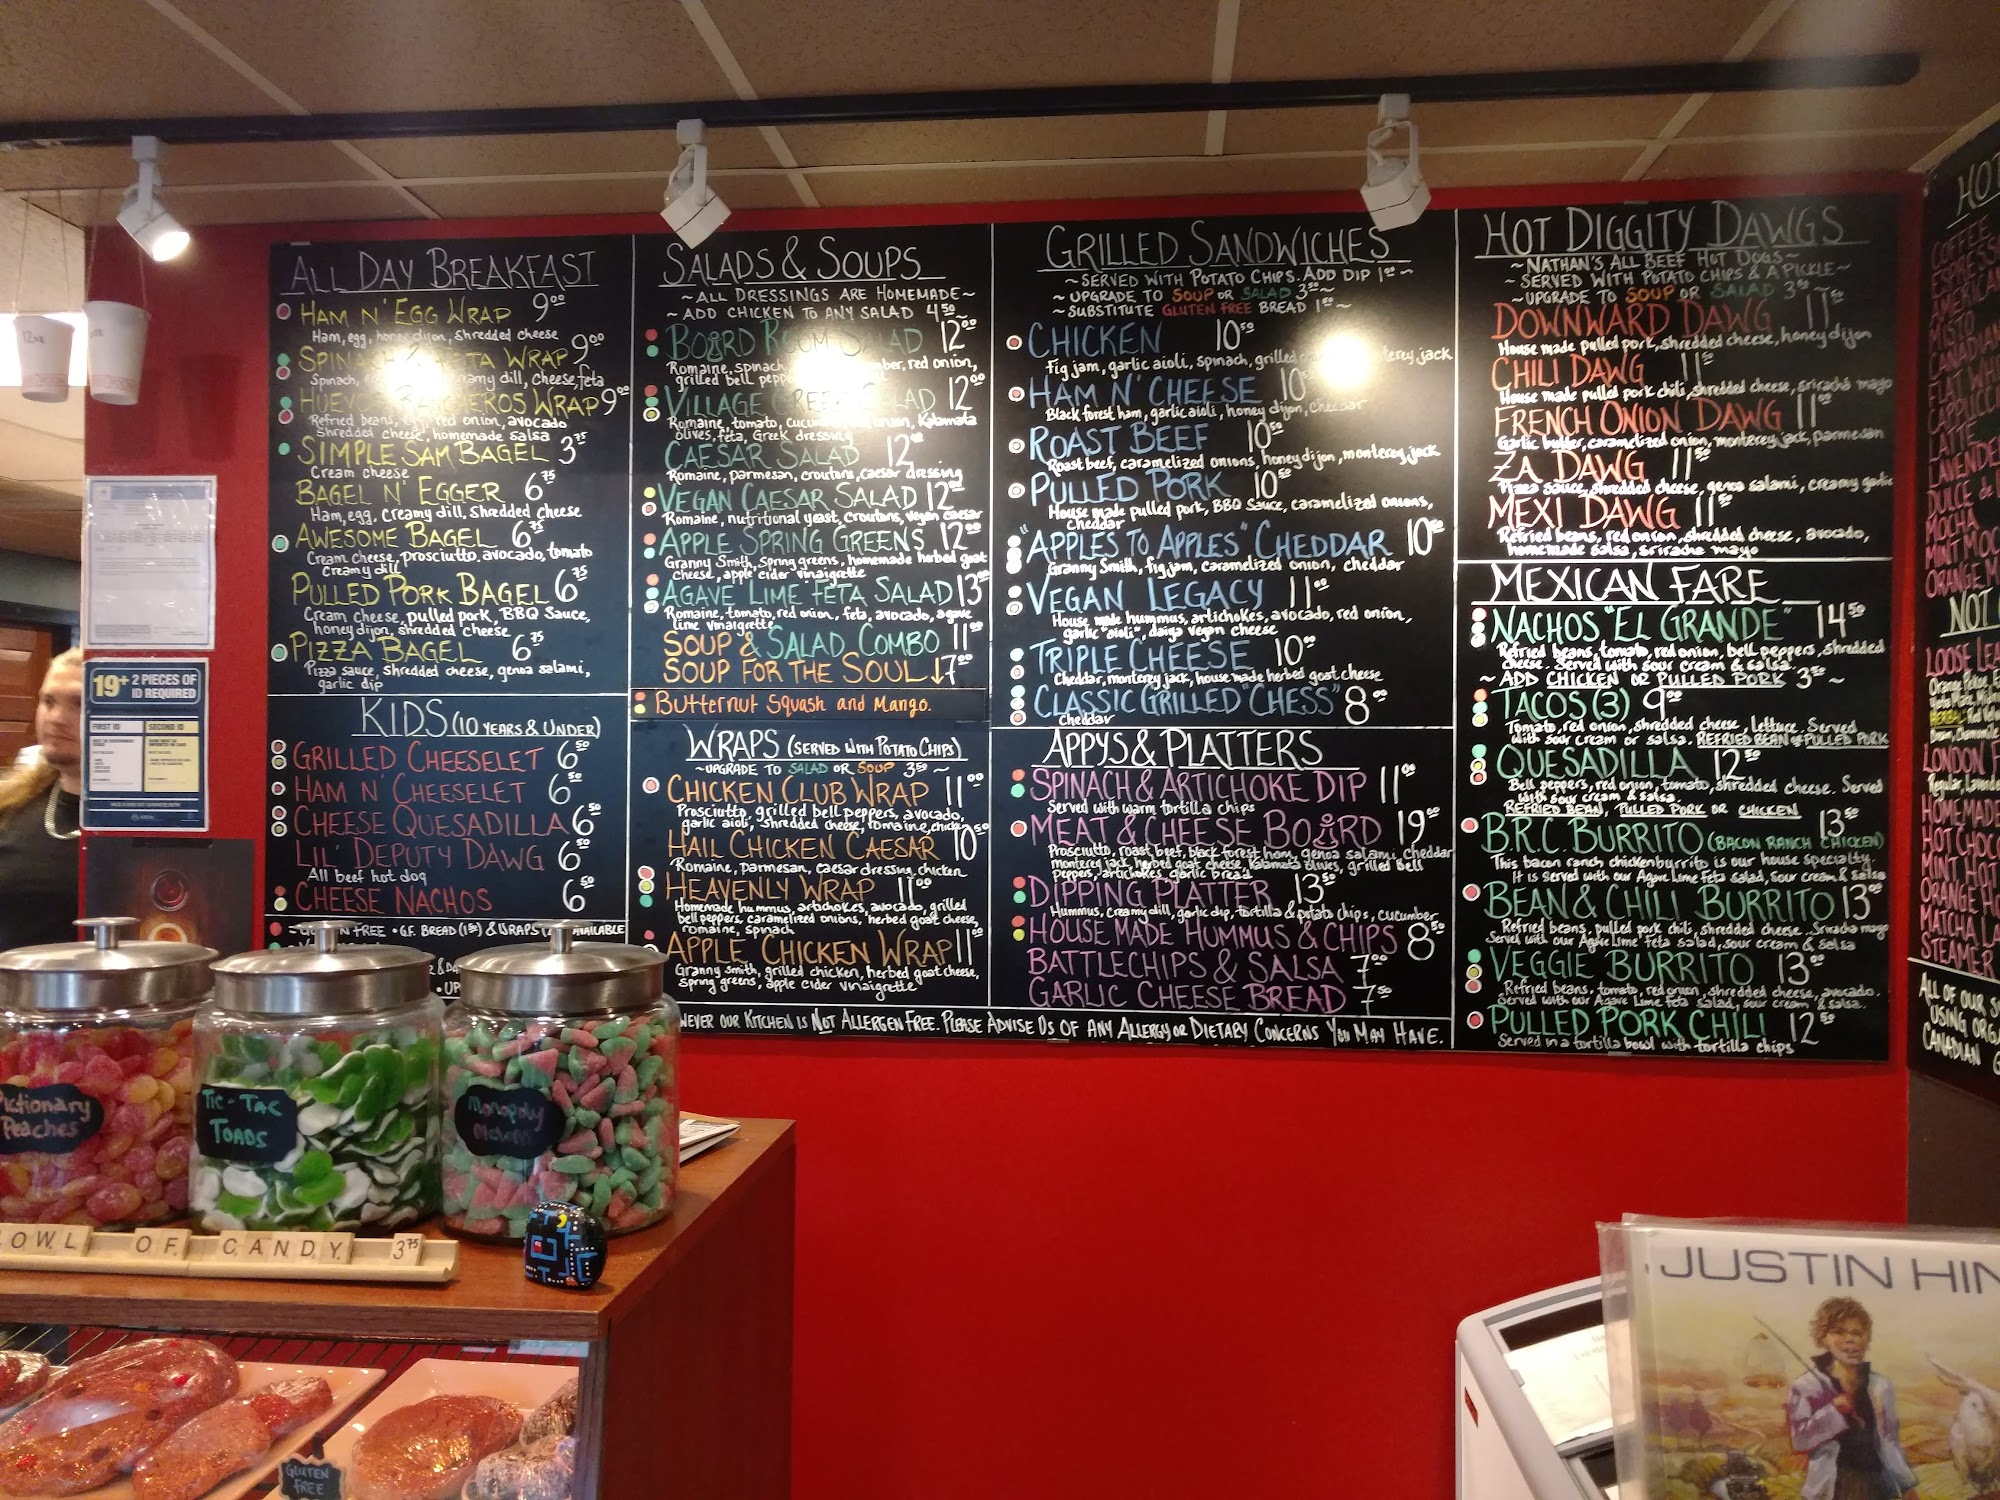 ALL DAY BREAKFAST
HAM N' EGG WRAP 9.00
Ham, egg, honey dijon, shredded cheese
SPINACH FETA WRAP 9.00
Spinach, creamy dill, cheese, feta
HUEVOS RANCHEROS WRAP 9.00
Refried beans, red onion, avocado
Shredded cheese, homemade salsa
SIMPLE SAM BAGEL 3.75
Cream cheese
BAGEL N' EGGER 6.75
Ham, egg, creamy dill, Shredded cheese
AWESOME BAGEL 6.75
Cream cheese, prosciutto, avocado, tomato
Creamy dill
PULLED PORK BAGEL 6.75
Cream cheese, pulled pork, BBQ Sauce,
honey dijon, shredded cheese
PIZZA BAGEL 6.75
Pizza sauce, shredded cheese, genoa salami,
garlic dip
KIDS (10 YEARS & UNDER)
GRILLED CHEESELET 6.50
HAM N' CHEESELET 6.50
CHEESE QUESADILLA 6.50
LIL' DEPUTY DAWG 6.50
All beef hot dog
CHEESE NACHOS 6.50
FREE • G.F. BREAD & WRAPS AVAILABLE
SALADS & SOUPS
~ ALL DRESSINGS ARE HOMEMADE ~
~ ADD CHICKEN TO ANY SALAD 4.50 ~
BOARD ROOM SALAD 12.00
Romaine, spinach red onion,
grilled bell
VILLAGE GREEK SALAD 12.00
Romaine, tomato, onion, Kalamata
olives, feta, Greek dressing
CAESAR SALAD 12.00
Romaine, parmesan, croutons, caesar dressing
VEGAN CAESAR SALAD 12.00
Romaine, nutritional yeast, croutons, vegan caesar
APPLE SPRING GREENS 12.00
Granny Smith, spring greens, homemade herbed goat
cheese, apple cider vinaigrette
AGAVE LIME FETA SALAD 13.00
Romaine, tomato, red onion, feta, avocado, agave
lime vinaigrette
SOUP & SALAD COMBO 11.00
SOUP FOR THE SOUL ↓ 7.00
Butternut Squash and Mango.
WRAPS (SERVED WITH POTATO CHIPS)
~ UPGRADE TO SALAD OR SOUP 3.50 ~
CHICKEN CLUB WRAP 11.00
Prosciutto, grilled bell peppers, avocado,
garlic aioli, shredded cheese, romaine, chicken
HAIL CHICKEN CAESAR 10.50
Romaine, parmesan, caesar dressing, chicken
HEAVENLY WRAP 11.00
Homemade hummus, artichokes, avocado, grilled
bell peppers, caramelized onions, herbed goat cheese,
romaine, spinach
APPLE CHICKEN WRAP 11.00
Granny smith, grilled chicken, herbed goat cheese,
spring greens, apple cider vinaigrette
GRILLED SANDWICHES
~ SERVED WITH POTATO CHIPS. ADD DIP 1.00 ~
~ UPGRADE TO SOUP OR SALAD 3.50 ~
~ SUBSTITUTE GLUTEN FREE BREAD 1.50 ~
CHICKEN 10.50
Fig jam, garlic aioli, spinach, grilled monterey jack
HAM N' CHEESE 10.50
Black forest ham, garlic aioli, honey dijon, cheddar
ROAST BEEF 10.50
Roast beef, caramelized onions, honey dijon, monterey jack
PULLED PORK 10.50
House made pulled pork, BBQ Sauce, caramelized onions,
cheddar
"APPLES TO APPLES" CHEDDAR 10.50
Granny Smith, fig jam, caramelized onion, cheddar
VEGAN LEGACY 11.00
House made hummus, artichokes, avocado, red onion,
garlic "aioli", daiya vegan cheese
TRIPLE CHEESE 10.00
Cheddar, monterey jack, house made herbed goat cheese
CLASSIC GRILLED "CHESS" 8.00
Cheddar
APPYS & PLATTERS
SPINACH & ARTICHOKE DIP 11.00
Served with warm tortilla chips
MEAT & CHEESE BOARD 19.00
Prosciutto, roast beef, black forest ham, genoa salami, cheddar
monterey jack, herbed goat cheese, Kalamata olives, grilled bell
peppers, artichokes, garlic bread
DIPPING PLATTER 13.50
Hummus, creamy dill, garlic dip, tortilla & potato chips, cucumber
HOUSE MADE HUMMUS & CHIPS 8.50
BATTLECHIPS & SALSA 7.00
GARLIC CHEESE BREAD 7.50
HOWEVER OUR KITCHEN IS NOT ALLERGEN FREE. PLEASE ADVISE US OF ANY ALLERGY OR DIETARY CONCERNS YOU MAY HAVE.
HOT DIGGITY DAWGS
~ NATHAN'S ALL BEEF HOT DOGS ~
~ SERVED WITH POTATO CHIPS & A PICKLE ~
~ UPGRADE TO SOUP OR SALAD 3.50 ~
DOWNWARD DAWG 11.50
House made pulled pork, shredded cheese, honey dijon
CHILI DAWG 11.50
House made pulled pork chili, shredded cheese, sriracha mayo
FRENCH ONION DAWG 11.50
Garlic butter, caramelized onion, monterey jack, parmesan
ZA DAWG 11.50
Pizza sauce, shredded cheese, genoa salami, creamy garlic
MEXI DAWG 11.50
Refried beans, red onion, shredded cheese, avocado,
homemade salsa, sriracha mayo
MEXICAN FARE
NACHOS "EL GRANDE" 14.50
Refried beans, tomato, red onion, bell peppers, shredded
cheese. Served with sour cream & salsa.
~ ADD CHICKEN OR PULLED PORK 3.50 ~
TACOS (3) 9.00
Tomato, red onion, shredded cheese, lettuce. Served
with sour cream or salsa. REFRIED BEAN or PULLED PORK
QUESADILLA 12.50
Bell peppers, red onion, tomato, shredded cheese. Served
with sour cream & salsa.
REFRIED BEAN, PULLED PORK OR CHICKEN
B.R.C. BURRITO (BACON RANCH CHICKEN) 13.50
This bacon ranch chicken burrito is our house specialty.
It is served with our Agave Lime Feta Salad, Sour cream & Salsa
BEAN & CHILI BURRITO 13.00
Refried beans, pulled pork chili, shredded cheese, Sriracha mayo
Served with our Agave Lime Feta salad, sour cream & salsa
VEGGIE BURRITO 13.00
Refried beans, tomato, red onion, shredded cheese, avocado.
Served with our Agave Lime Feta salad, sour cream & salsa.
PULLED PORK CHILI 12.50
Served in a tortilla bowl with tortilla chips
HOT
COFFEE
LONDON
HOMEMADE
HOT CHOC
MINT HOT
ORANGE
MATCHA
STEAMER
ALL OF OUR
USING
CANADIAN
12oz
19+ 2 PIECES OF
ID REQUIRED
FIRST ID SECOND ID
Pictionary
Peaches
TIC-TAC
TOADS
Monopoly
OWL OF CANDY 3.75
GLUTEN
FREE
JUSTIN HIN